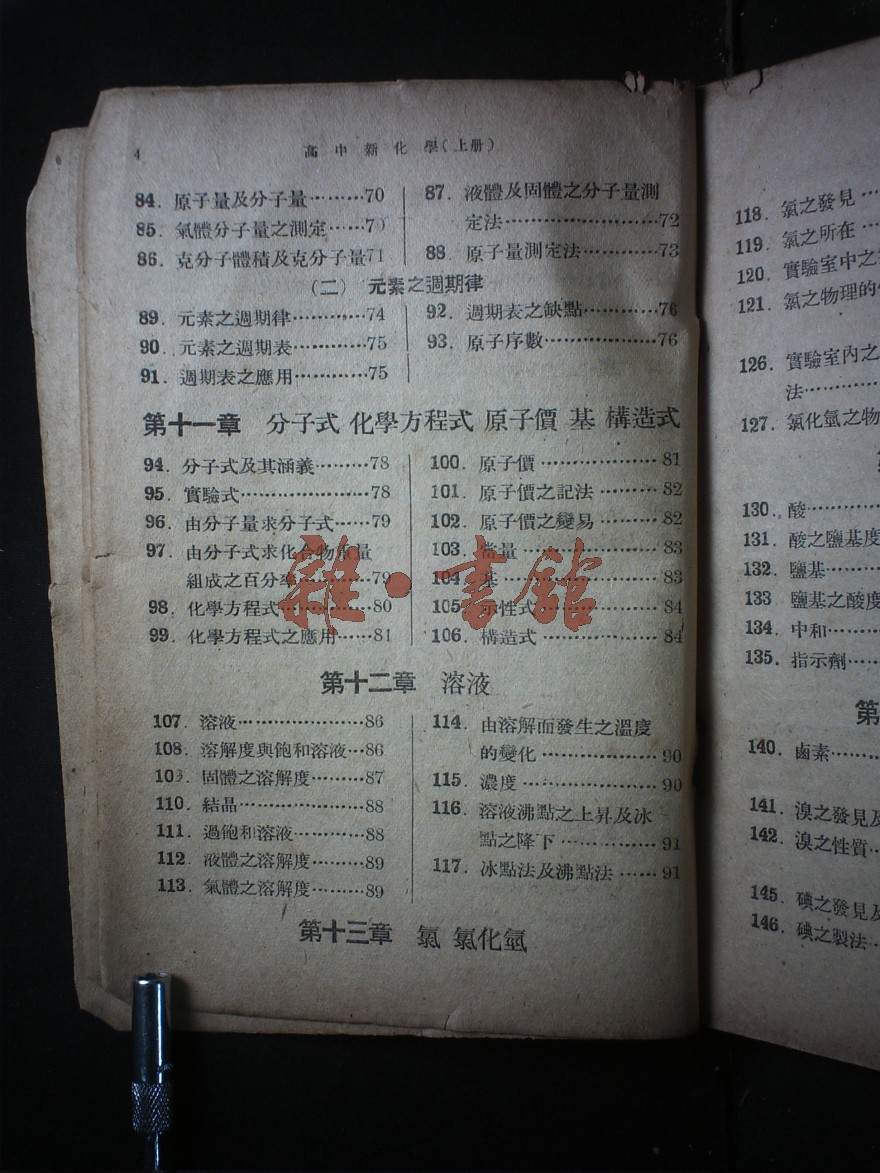 4
高中新化學(上册)
84. 原子量及分子量………70
85. 氣體分子量之測定……70
86. 克分子體積及克分子量71
87. 液體及固體之分子量測
定法……………72
88. 原子量測定法………73
(二) 元素之週期律
89. 元素之週期律…………74
90. 元素之週期表…………75
91. 週期表之應用…………75
92. 週期表之缺點…………76
93. 原子序數………………76
第十一章 分子式 化學方程式 原子價 基 構造式
94. 分子式及其涵義………78
95. 實驗式…………………78
96. 由分子量求分子式……79
97. 由分子式求化合物重量
組成之百分率…………79
98. 化學方程式……………80
99. 化學方程式之應用……81
100. 原子價………………81
101. 原子價之記法………82
102. 原子價之變易………82
103. 當量…………………83
104. 基……………………83
105. 性式…………………84
106. 構造式………………84
第十二章 溶液
107. 溶液…………………86
108. 溶解度與飽和溶液…86
109. 固體之溶解度………87
110. 結晶…………………88
111. 過飽和溶液…………88
112. 液體之溶解度………89
113. 氣體之溶解度………89
114. 由溶解而發生之溫度
的變化………………90
115. 濃度…………………90
116. 溶液沸點之上昇及冰
點之降下……………91
117. 冰點法及沸點法……91
第十三章 氯 氯化氫
118. 氯之發見…
119. 氯之所在…
120. 實驗室中之
121. 氯之物理的
126. 實驗室內之
法…………
127. 氯化氫之物
130. 酸…………
131. 酸之鹽基度
132. 鹽基………
133 鹽基之酸度
134. 中和………
135. 指示劑……
第
140. 鹵素………
141. 溴之發見及
142. 溴之性質…
145. 碘之發見及
146. 碘之製法…
雜·書館